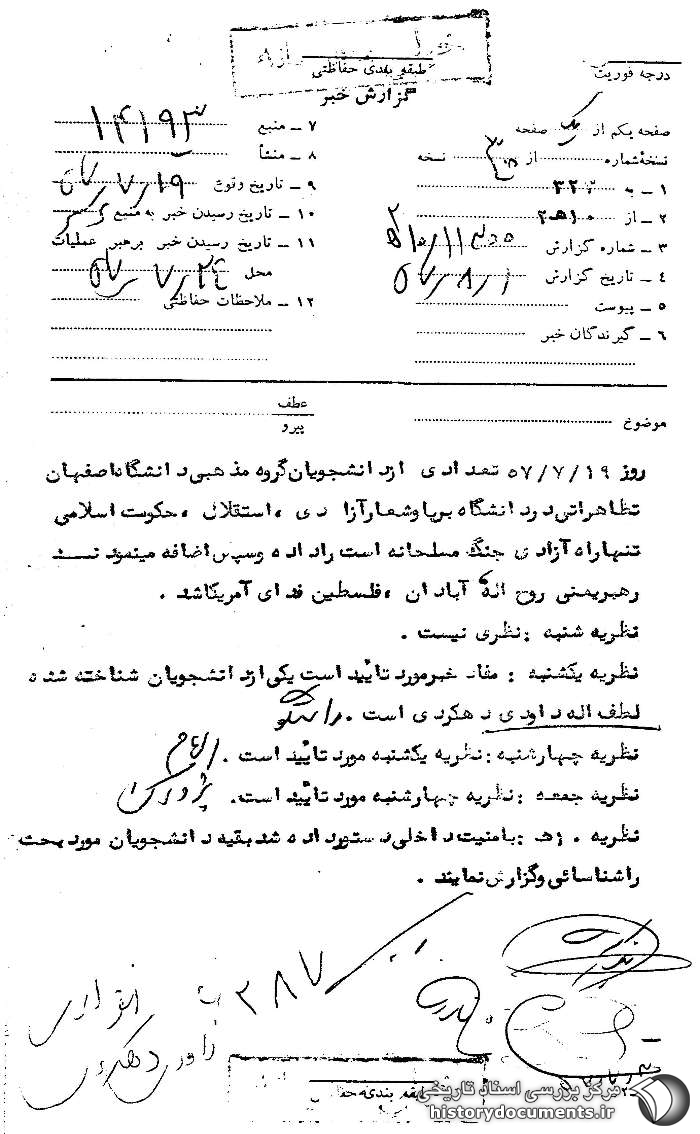 طبقه بندی حفاظتی
درجه فوریت
گزارش خبر
صفحه یکم از یک صفحه
نسخه شماره از نسخه
۱ ـ به ۳۲۲
۲ ـ از ۲ه۱۰
۳ ـ شماره گزارش
۴ ـ تاریخ گزارش ۵۷/۸/۱
۵ ـ پیوست
۶ ـ گیرندگان خبر
۷ ـ منبع ۱۴۱۹۳
۸ ـ منشأ
۹ ـ تاریخ وقوع ۵۷/۷/۱۹
۱۰ ـ تاریخ رسیدن خبر به منبع
۱۱ ـ تاریخ رسیدن خبر برهبر عملیات
محل ۵۷/۷/۲۴
۱۲ ـ ملاحظات حفاظتی
موضوع
عطف
پیرو
روز ۵۷/۷/۱۹ تعدادی ازدانشجویان گروه مذهبی دانشگاه اصفهان
تظاهراتی در دانشگاه برپا وشعار آزادی ، استقلال ، حکومت اسلامی
تنها راه آزادی جنگ مسلحانه است را داده وسپس اضافه مینمودند
رهبر یمنی روح اله آبادان ، فلسطین فدای آمریکا شد .
نظریه شنبه : نظری نیست .
نظریه یکشنبه : مفاد خبر مورد تأیید است یکی از دانشجویان شناخته شده
لطف اله داودی دهکردی است .
نظریه چهارشنبه : نظریه یکشنبه مورد تأیید است .
نظریه جمعه : نظریه چهارشنبه مورد تأیید است.
نظریه ۱۰ه : با منیت داخلی دستور داده شد بقیه دانشجویان مورد بحث
را شناسائی وگزارش نمایند .
۳۸۷
دهکردی
طبقه بندی
مرکز بررسی اسناد تاریخی
historydocuments.ir